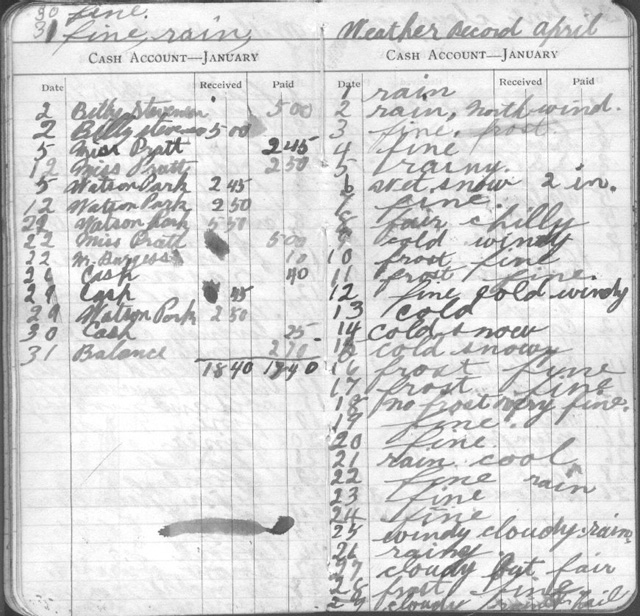 30 fine.
31 fine, rain
CASH ACCOUNT—JANUARY
Date Received Paid
2 Billy Stevenson 5 00
2 Billy Stevenson 5 00
5 Miss Pratt 2 45
12 Miss Pratt 2 50
5 Watson Park 2 45
12 Watson Park 2 50
22 Watson Park 5 50
22 Miss Pratt 5 00
22 M. Burgess 10
26 Cash 40
29 Cash 45
29 Watson Park 2 50
30 Cash 25
31 Balance 2 70
18 40 18 40
Weather Record April
CASH ACCOUNT—JANUARY
Date Received Paid
1 rain
2 rain, north wind.
3 fine, frost.
4 fine
5 rainy.
6 wet snow 2 in.
7 fine.
8 fair chilly
9 cold windy
10 frost fine
11 frost fine.
12 fine cold windy
13 cold
14 cold snow
15 cold snowy
16 frost fine
17 frost fine
18 no frost very fine.
19 fine.
20 fine.
21 rain cool
22 fine rain
23 fine
24 fine
25 windy cloudy rain
26 rainy
27 cloudy but fair
28 frost fine
29 cloudy hail